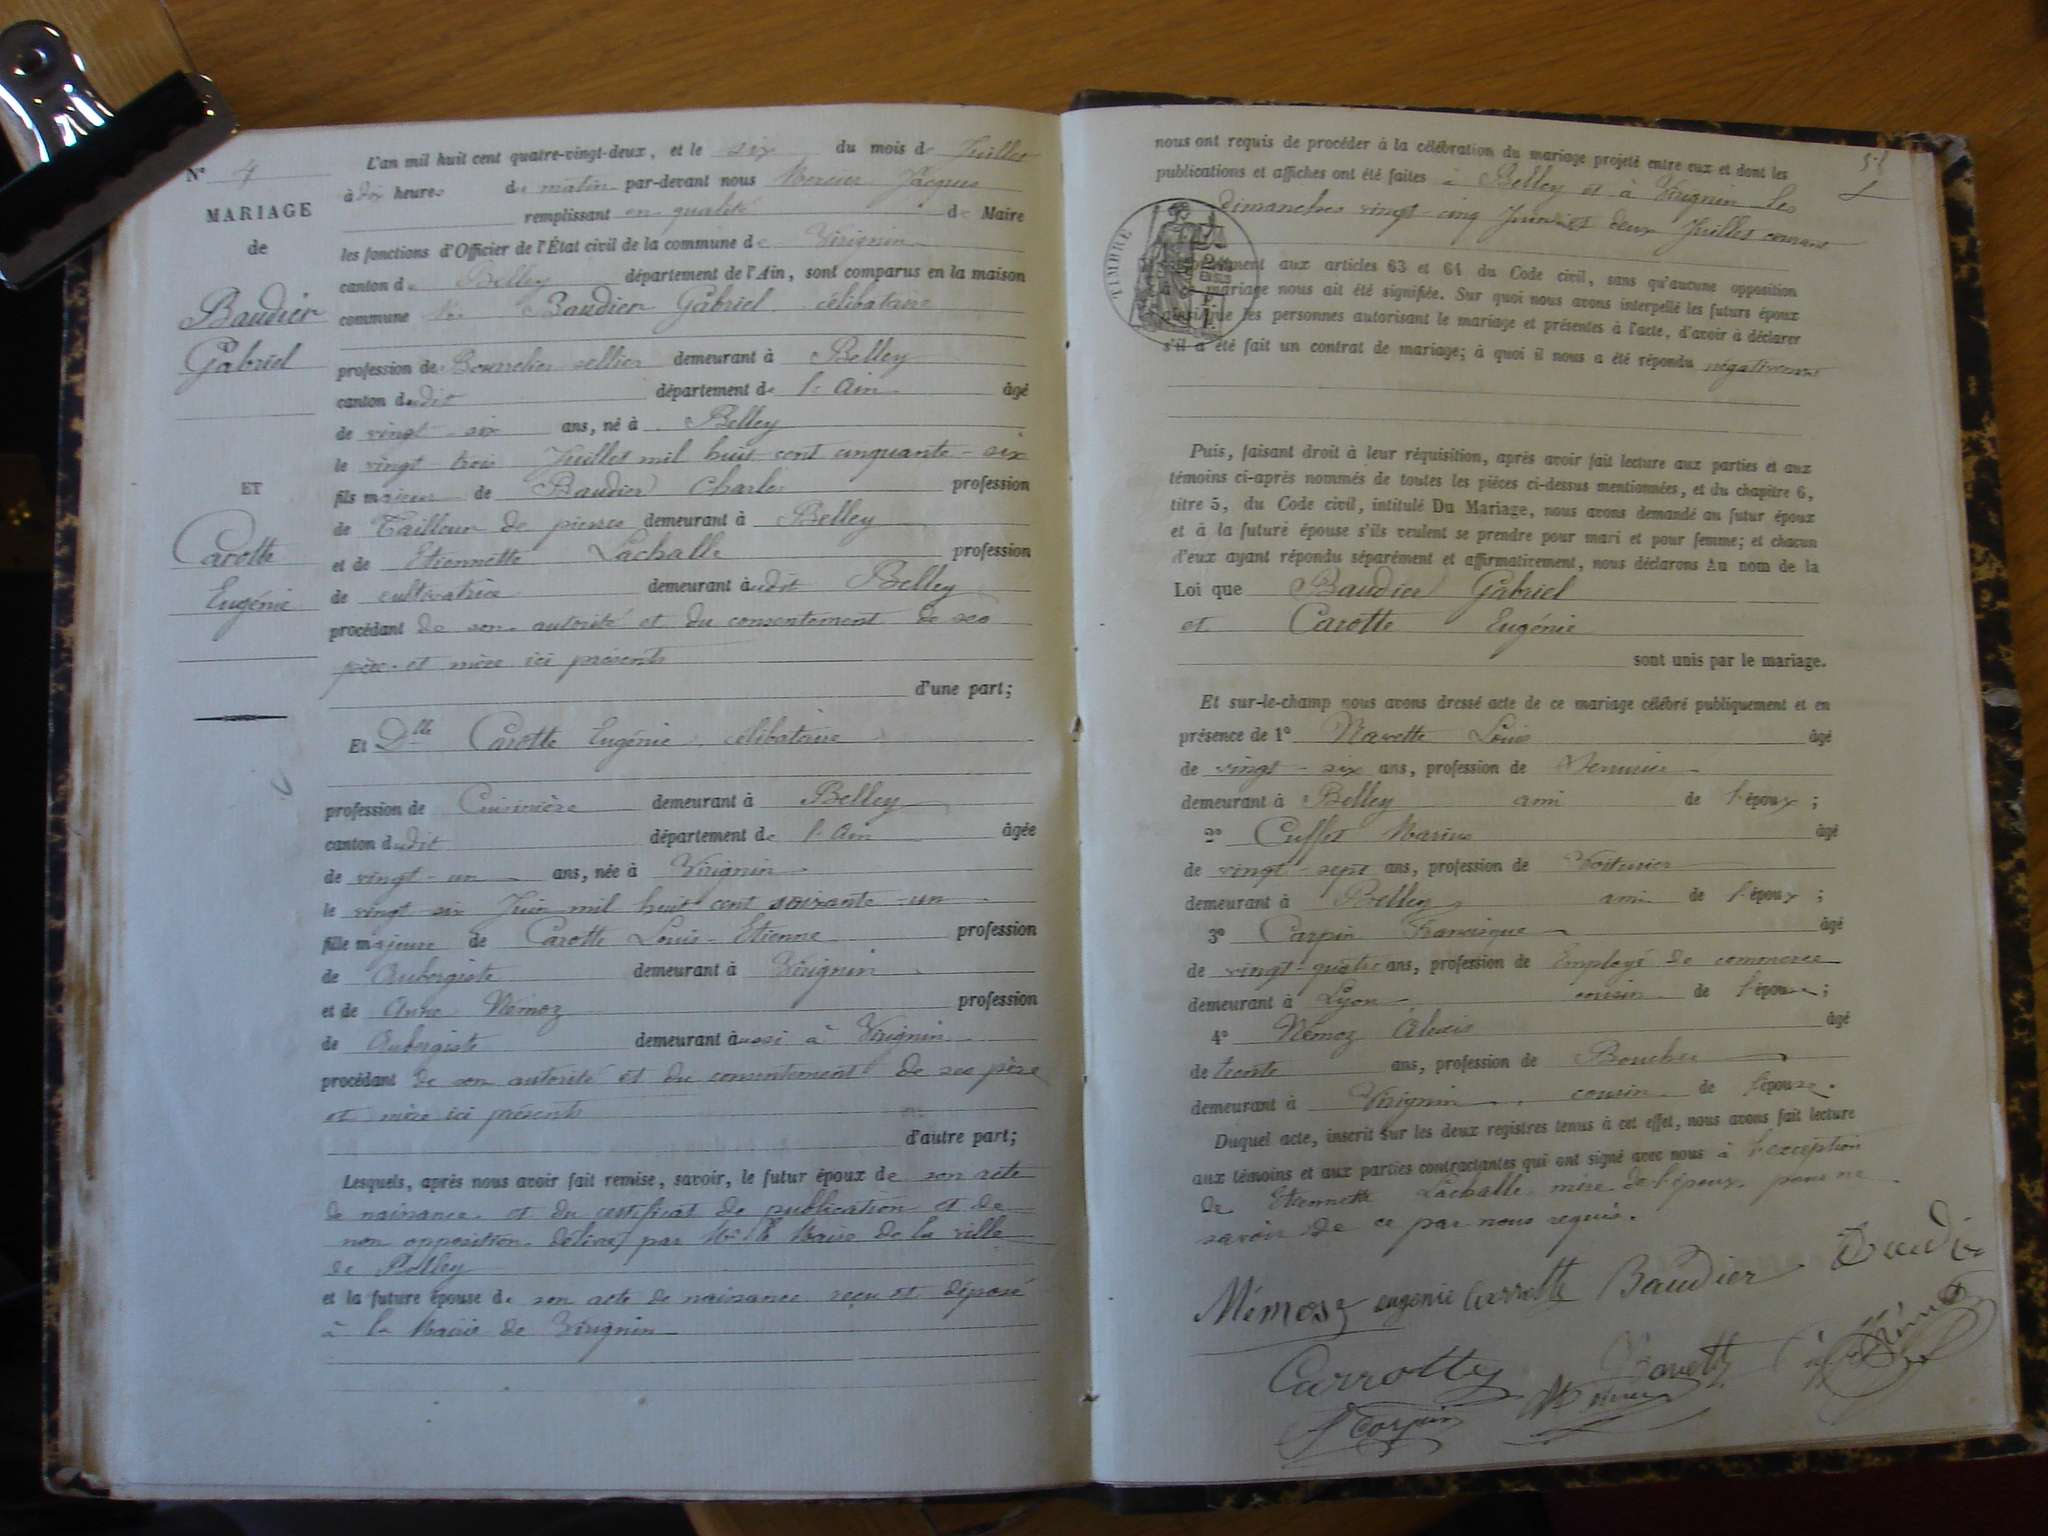 N° 4
MARIAGE
de
Baudier
Gabriel
ET
Carotte
Eugénie
L'an mil huit cent quatre-vingt-deux, et le six du mois de Juillet
à dix heures du matin par-devant nous Mercier Jacques
remplissant en qualité de Maire
les fonctions d'Officier de l'État civil de la commune de Virignin
canton de Belley département de l'Ain, sont comparus en la maison
commune Baudier Gabriel célibataire
profession de Bourrelier sellier demeurant à Belley
canton dudit département de l'Ain âgé
de vingt-six ans, né à Belley
le vingt-trois Juillet mil huit cent cinquante-six
fils majeur de Baudier Charles profession
de Tailleur de pierres demeurant à Belley
et de Etiennette Lachalle profession
de cultivatrice demeurant audit Belley
procédant de son autorité et du consentement de ses
père et mère ici présents
d'une part;
Et Dlle Carotte Eugénie célibataire
profession de Cuisinière demeurant à Belley
canton dudit département de l'Ain âgée
de vingt-un ans, née à Virignin
le vingt six Juin mil huit cent soixante-un
fille majeure de Carotte Louis-Etienne profession
de Aubergiste demeurant à Virignin
et de Anne Némoz profession
de Aubergiste demeurant aussi à Virignin
procédant de son autorité et du consentement de ses père
et mère ici présents
d'autre part;
Lesquels, après nous avoir fait remise, savoir, le futur époux de son acte
de naissance et du certificat de publication et de
non opposition délivré par Mr le Maire de la ville
de Belley
et la future épouse de son acte de naissance reçu et déposé
à la Mairie de Virignin
nous ont requis de procéder à la célébration du mariage projeté entre eux et dont les
publications et affiches ont été faites à Belley et à Virignin les
dimanches vingt-cinq Juin et deux Juillet courant
TIMBRE
aux articles 63 et 64 du Code civil, sans qu'aucune opposition
à ce mariage nous ait été signifiée. Sur quoi nous avons interpellé les futurs époux
ainsi que les personnes autorisant le mariage et présentes à l'acte, d'avoir à déclarer
s'il a été fait un contrat de mariage; à quoi il nous a été répondu négativement
Puis, faisant droit à leur réquisition, après avoir fait lecture aux parties et aux
témoins ci-après nommés de toutes les pièces ci-dessus mentionnées, et du chapitre 6,
titre 5, du Code civil, intitulé Du Mariage, nous avons demandé au futur époux
et à la future épouse s'ils veulent se prendre pour mari et pour femme; et chacun
d'eux ayant répondu séparément et affirmativement, nous déclarons Au nom de la
Loi que Baudier Gabriel
et Carotte Eugénie
sont unis par le mariage.
Et sur-le-champ nous avons dressé acte de ce mariage célébré publiquement et en
présence de 1° Navette Louis âgé
de vingt-six ans, profession de Menuisier
demeurant à Belley ami de l'époux;
2° Cuffet Marius âgé
de vingt-sept ans, profession de Voiturier
demeurant à Belley ami de l'époux;
3° Carpin Francisque âgé
de vingt-quatre ans, profession de Employé de commerce
demeurant à Lyon cousin de l'épouse;
4° Némoz Alexis âgé
de trente ans, profession de Boucher
demeurant à Virignin cousin de l'épouse.
Duquel acte, inscrit sur les deux registres tenus à cet effet, nous avons fait lecture
aux témoins et aux parties contractantes qui ont signé avec nous à l'exception
de Etiennette Lachalle mère de l'époux pour ne
savoir de ce par nous requis.
Mémosz eugenie Carrotte Baudier Baudier
Carrotte Navette
Carpin